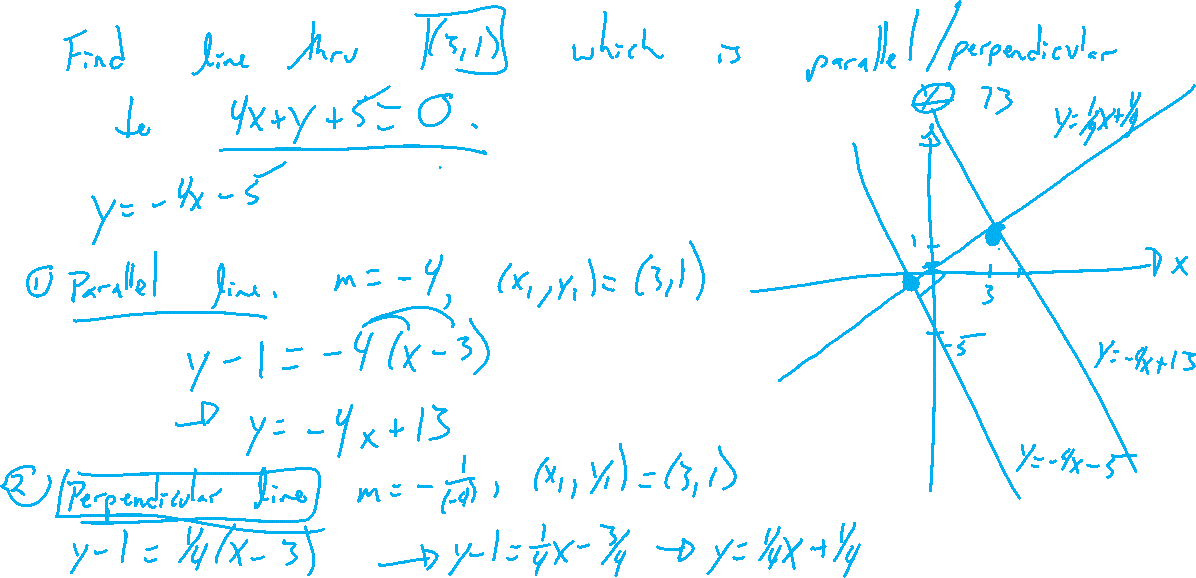 Find line thru (3,1) which is parallel/perpendicular
to 4x+y+5=0.
y=-4x-5
① Parallel line. m=-4, (x₁,y₁)=(3,1)
y-1=-4(x-3)
→ y=-4x+13
② Perpendicular line m=-1/(-4), (x₁,y₁)=(3,1)
y-1=1/4(x-3) → y-1=1/4x-3/4 → y=1/4x+1/4
y 13
y=1/4x+1/4
1
3
x
-5
y=-4x+13
y=-4x-5